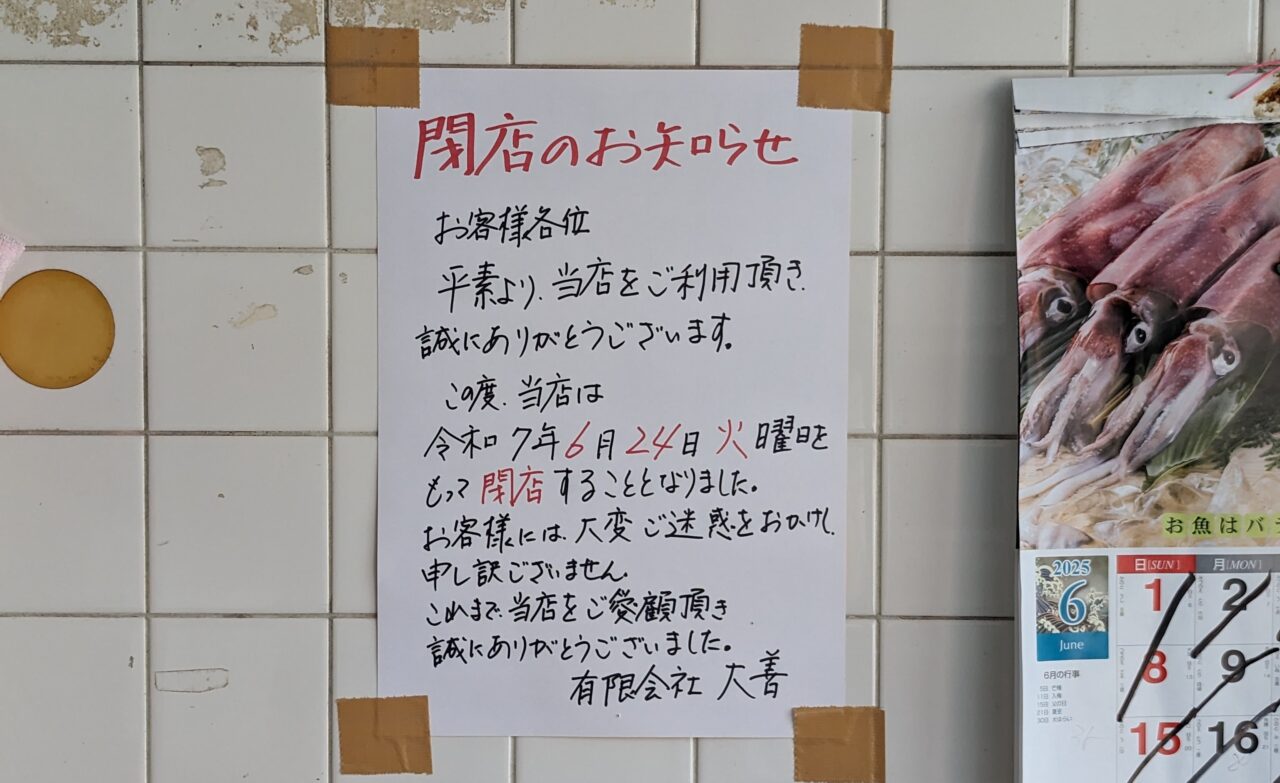 閉店のお知らせ
お客様各位
平素より、当店をご利用頂き、
誠にありがとうございます。
この度、当店は
令和7年6月24日火曜日を
もって閉店することとなりました。
お客様には、大変ご迷惑をおかけし、
申し訳ございません。
これまで、当店をご愛顧頂き
誠にありがとうございました。
有限会社 大善
お魚はバ
2025
6
June
日[SUN] 月[MON]
1 2
8 9
15 16
6月の行事
5日 芒種
11日 入梅
15日 父の日
21日 夏至
30日 大はらい